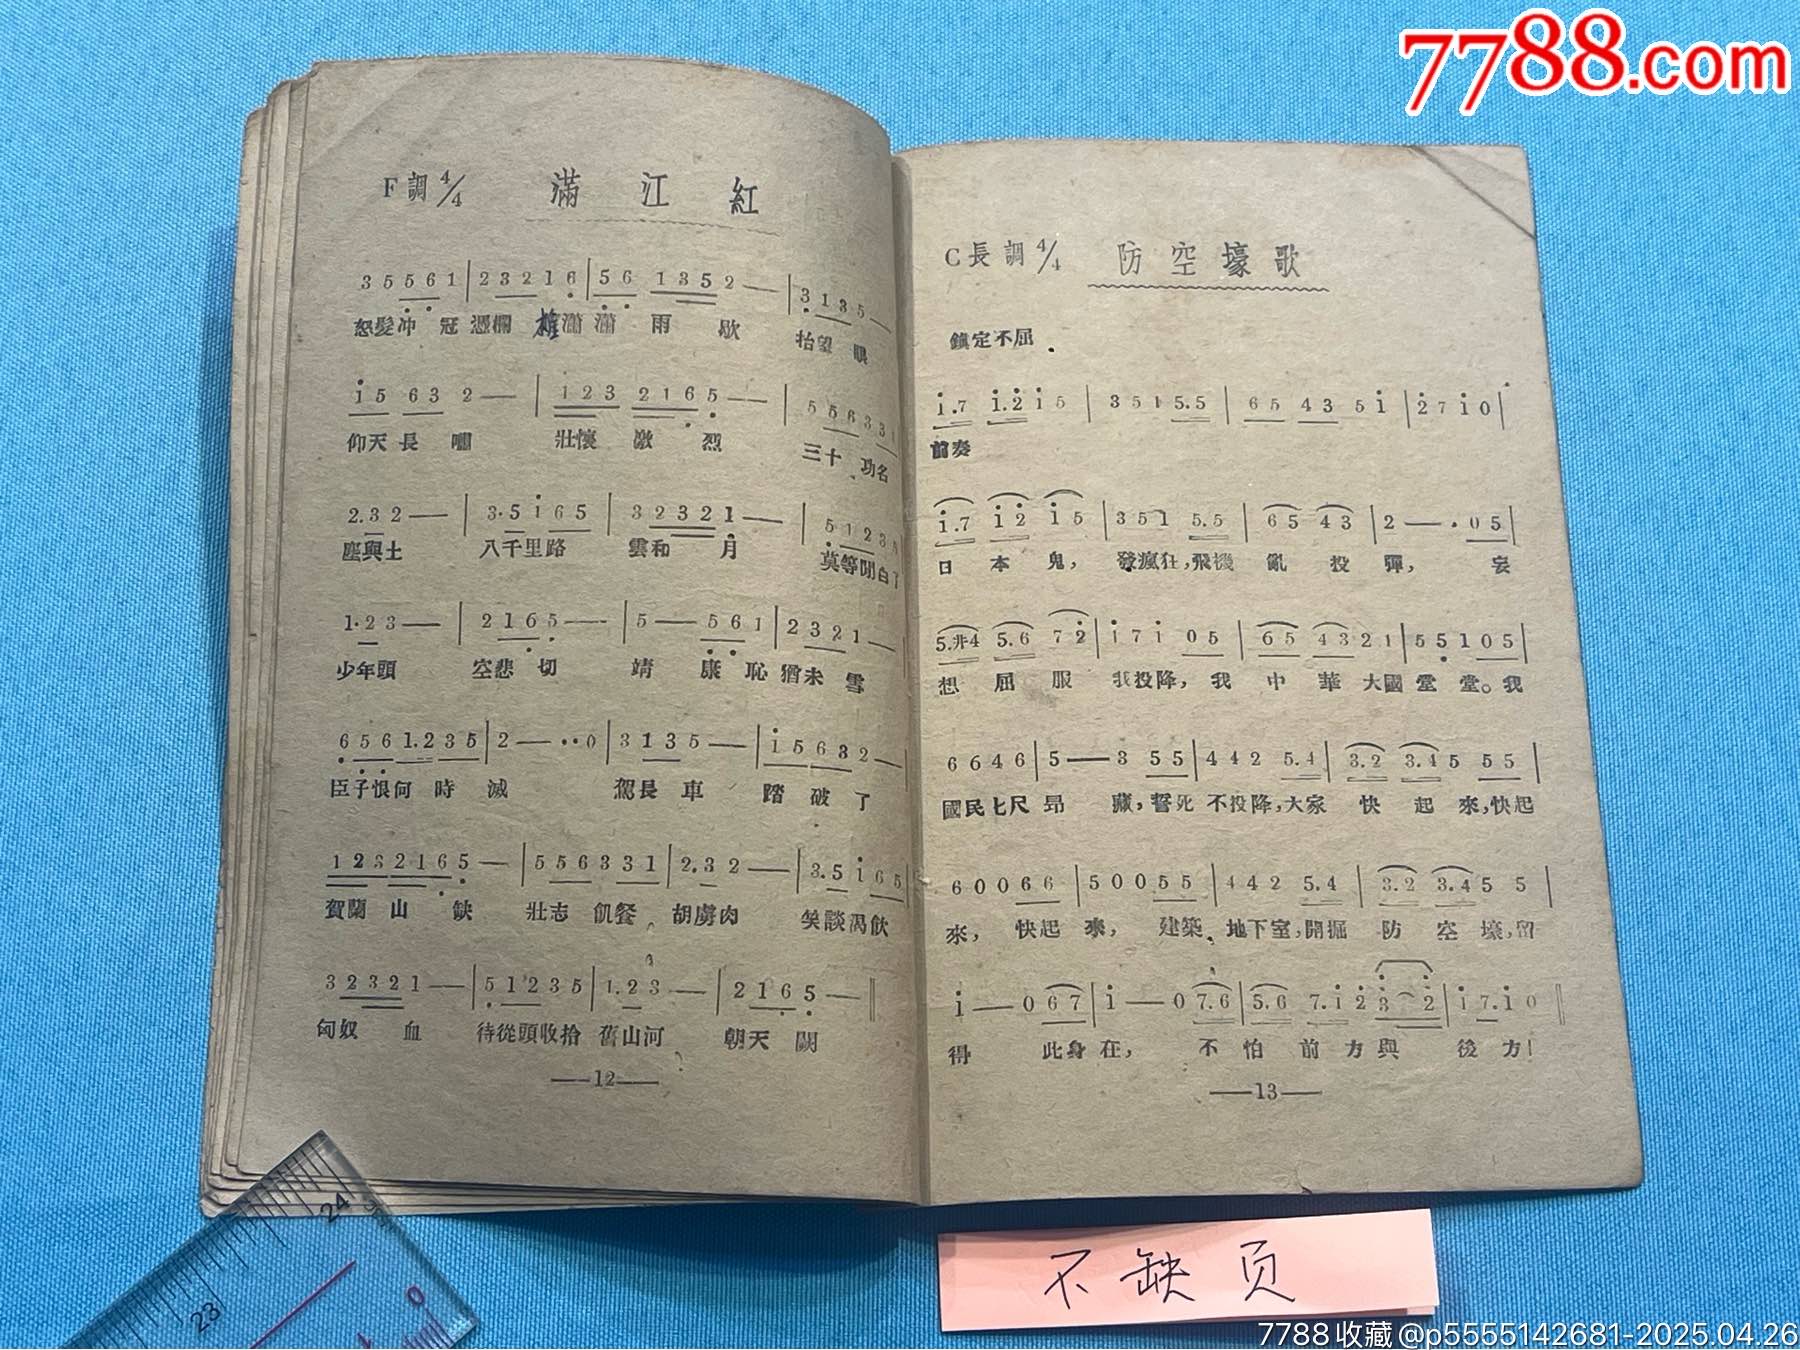 7788.com
F調 4/4 滿江紅
3 5 5 6 1 | 2 3 2 1 6 | 5 6 1 3 5 2 — | 3 1 3 5 —
怒髮冲 冠 憑欄 瀟 瀟 雨 歇 抬望 眼
i 5 6 3 2 — | 1 2 3 2 1 6 5 — | 5 5 6 3 3 1
仰天長 嘯 壯懷 激 烈 三十 功名
2.3 2 — | 3.5 i 6 5 | 3 2 3 2 1 — | 5 1 2 3 5
塵與土 八千里路 雲和 月 莫等閒白了
1.2 3 — | 2 1 6 5 — | 5 — 5 6 1 | 2 3 2 1 —
少年頭 空悲 切 靖 康 恥 猶未 雪
6 5 6 1.2 3 5 | 2 — ··0 | 3 1 3 5 — | i 5 6 3 2 —
臣子恨何 時 滅 駕長 車 踏 破 了
1 2 3 2 1 6 5 — | 5 5 6 3 3 1 | 2.3 2 — | 3.5 i 6 5
賀蘭 山 缺 壯志 飢餐 胡虜肉 笑談渴飲
3 2 3 2 1 — | 5 1 2 3 5 | 1.2 3 — | 2 1 6 5 — ‖
匈奴 血 待從頭收拾 舊山河 朝天 闕
—12—
C長調 4/4 防空壕歌
鎮定不屈
i.7 i.2 i 5 | 3 5 1 5.5 | 6 5 4 3 5 i | 2 7 i 0 |
前奏
i.7 i 2 i 5 | 3 5 1 5.5 | 6 5 4 3 | 2 — . 0 5 |
日 本 鬼, 發瘋狂,飛機 亂 投 彈, 妄
5.#4 5.6 7 2 | i 7 i 0 5 | 6 5 4 3 2 1 | 5 5 1 0 5 |
想 屈 服 我投降, 我 中 華 大國堂堂。我
6 6 4 6 | 5 — 3 5 5 | 4 4 2 5.4 | 3.2 3.4 5 5 5 |
國民七尺 昂 藏,誓死 不投降,大家 快 起 來,快起
6 0 0 6 6 | 5 0 0 5 5 | 4 4 2 5.4 | 3.2 3.4 5 5 |
來, 快起 來, 建築、地下室,開掘 防 空 壕,留
i — 0 6 7 | i — 0 7.6 | 5.6 7.i 2 3 2 | i 7.i 0 ‖
得 此身在, 不 怕 前 方與 後 方!
—13—
24
23
0
不缺页
7788收藏@p5555142681-2025.04.26